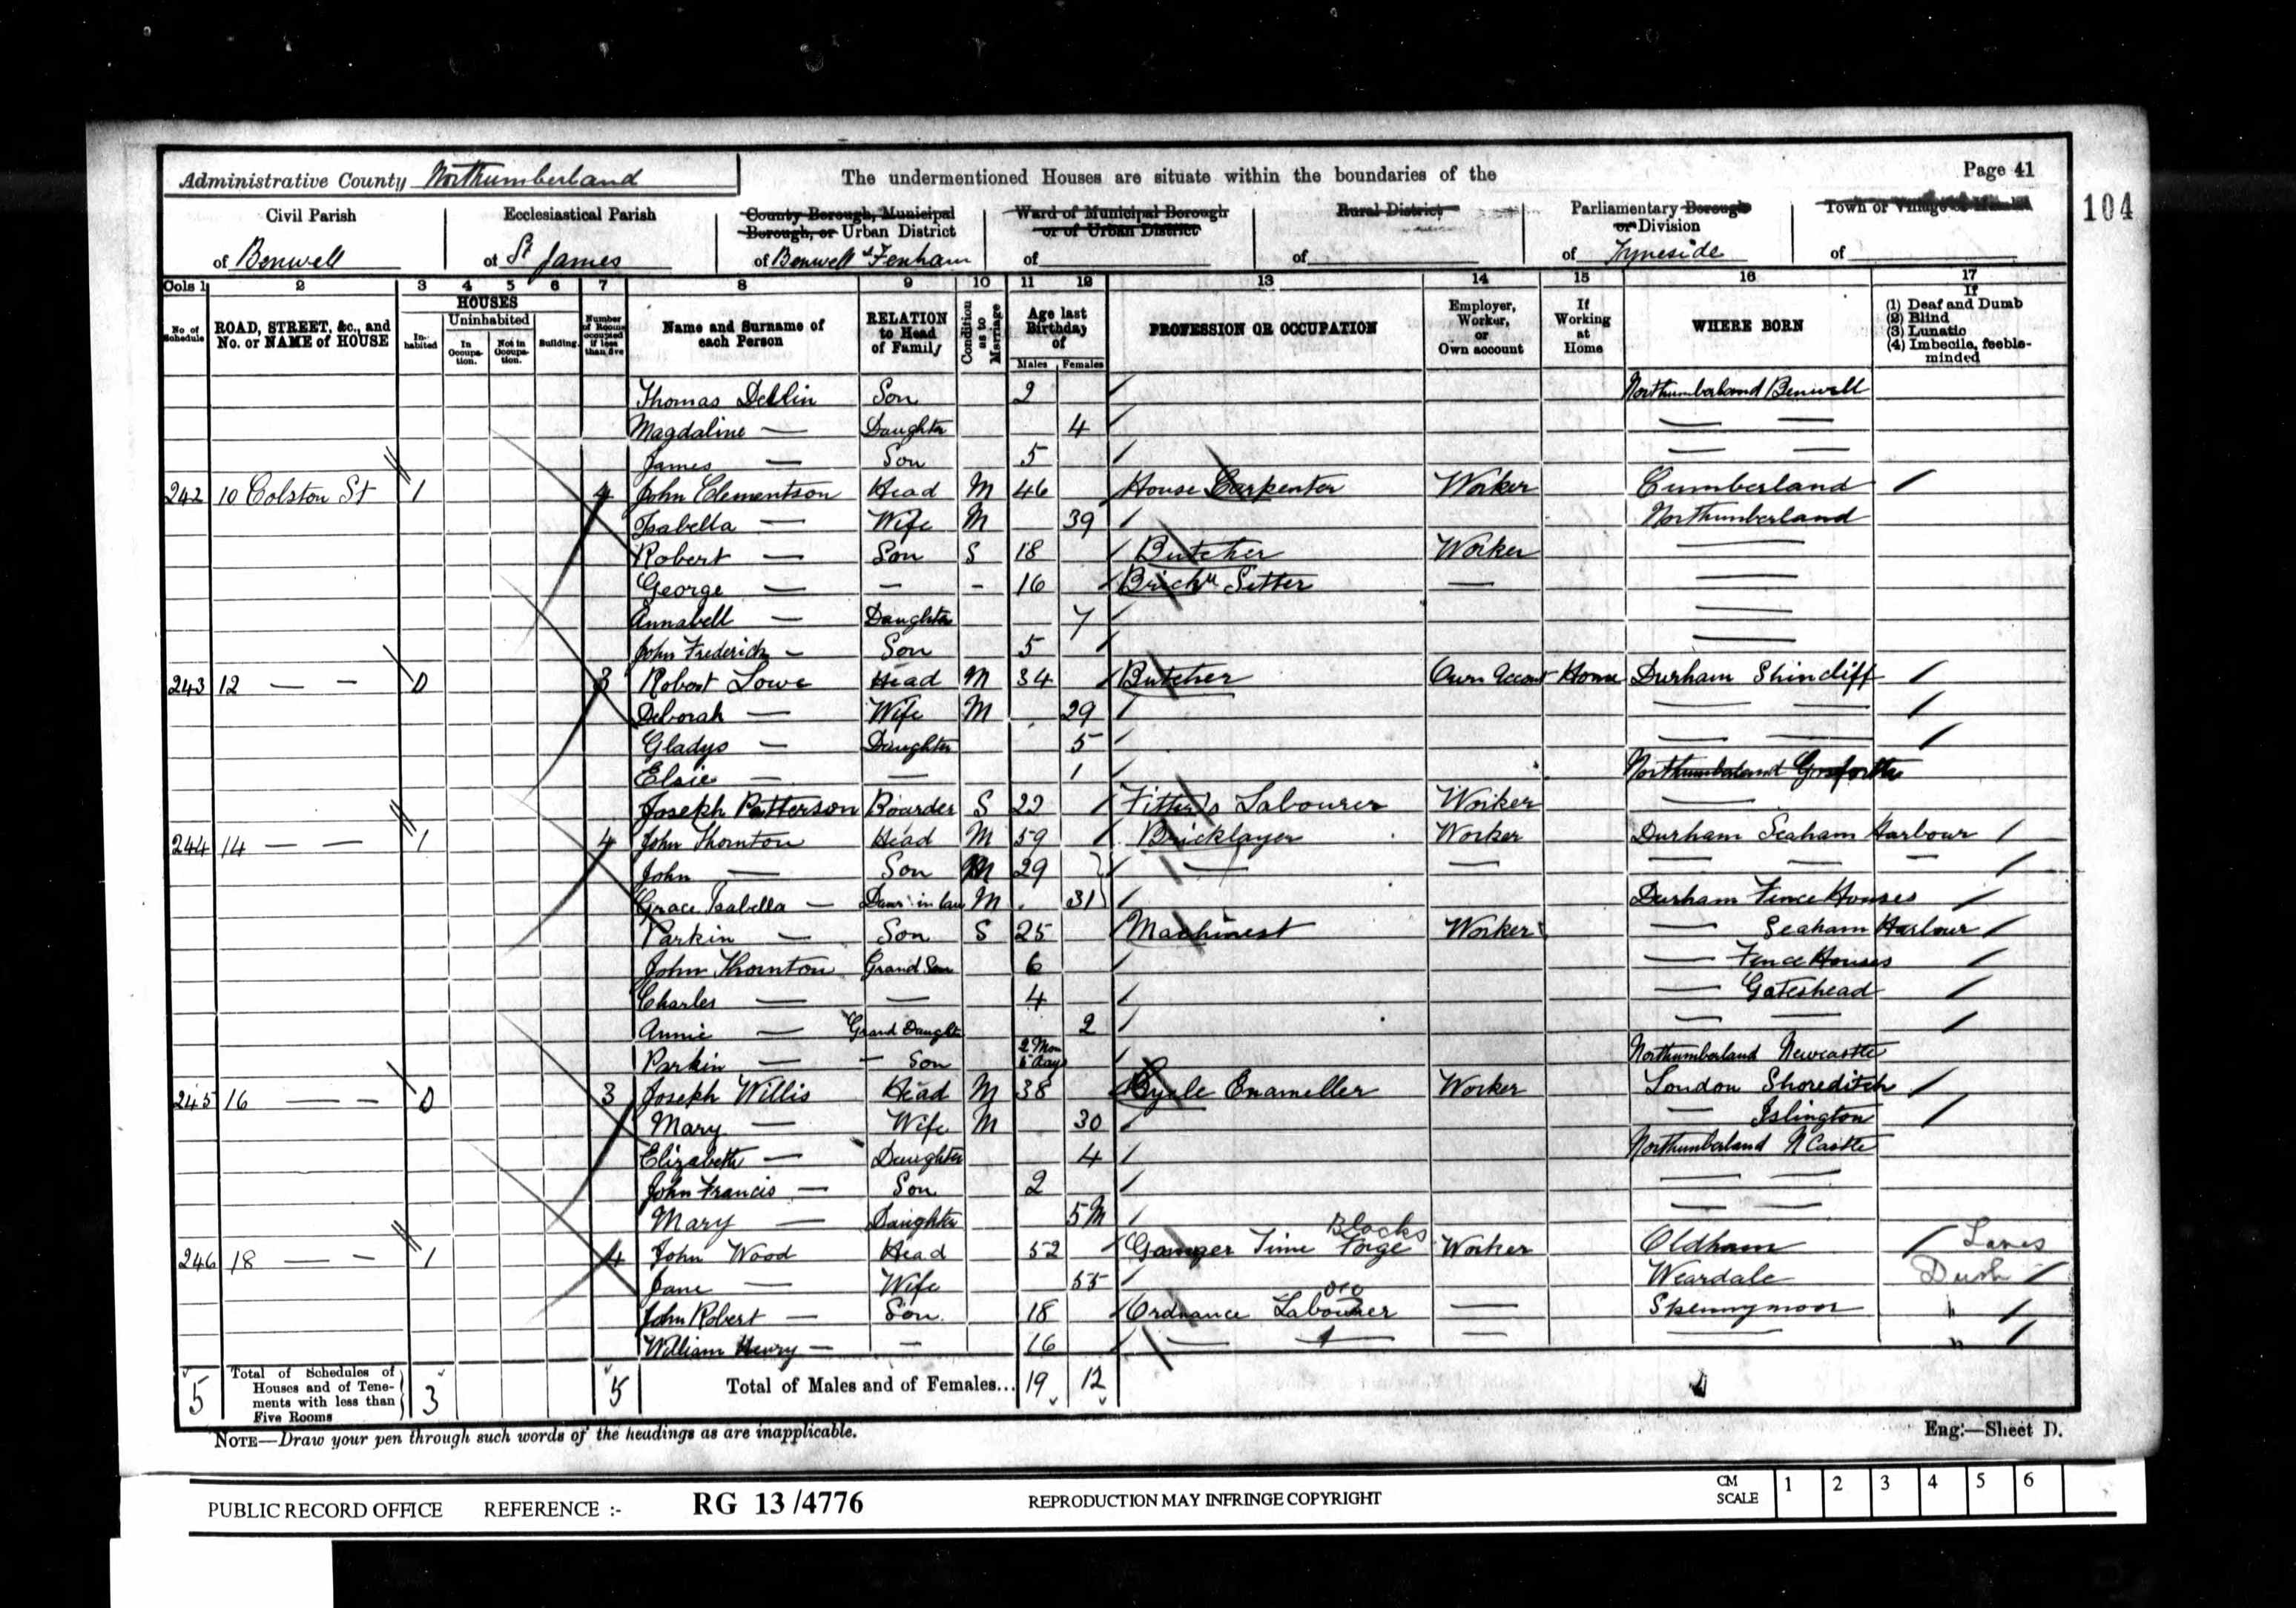 Administrative County Northumberland
The undermentioned Houses are situate within the boundaries of the
Page 41
104
Civil Parish of Benwell
Ecclesiastical Parish of St James
County Borough, Municipal Borough, or Urban District of Benwell & Fenham
Ward of Municipal Borough or of Urban District of
Rural District of
Parliamentary Borough or Division of Tyneside
Town or Village of
Cols 1 2 3 4 5 6 7 8 9 10 11 12 13 14 15 16 17
No. of Schedule
ROAD, STREET, &c., and No. or NAME of HOUSE
HOUSES
Inhabited
Uninhabited
In Occupation.
Not in Occupation.
Building.
Number of Rooms occupied if less than five
Name and Surname of each Person
RELATION to Head of Family
Condition as to Marriage
Age last Birthday of
Males Females
PROFESSION OR OCCUPATION
Employer, Worker, or Own account
If Working at Home
WHERE BORN
If (1) Deaf and Dumb (2) Blind (3) Lunatic (4) Imbecile, feeble-minded
Thomas Son 2 Northumberland Benwell
Magdaline — Daughter 4 — —
James — Son 5 — —
242 10 Colston St 1 4 John Clementson Head M 46 House Carpenter Worker Cumberland
Isabella — Wife M 39 Northumberland
Robert — Son S 18 Butcher Worker —
George — — - 16 Setter — —
Annabell — Daughter 7 —
John Frederick - Son 5 —
243 12 — — 0 3 Robert Lowe Head M 34 Butcher Own Account Home Durham Shincliff
Deborah — Wife M 29 — —
Gladys — Daughter 5 — —
Elsie — — 1 Northumberland Gosforth
Joseph Patterson Boarder S 22 Fitter's Labourer Worker —
244 14 — — 1 4 John Thornton Head M 59 Bricklayer Worker Durham Seaham Harbour
John — Son M 29 — — — — —
Grace Isabella — Daur in law M 31 Durham Fence Houses
Parkin — Son S 25 Machinest Worker — Seaham Harbour
John Thornton Grand Son 6 — Fence Houses
Charles — — 4 — Gateshead
Annie — Grand Daught 2 — —
Parkin — — Son 2 Mon 5 days Northumberland Newcastle
245 16 — — 0 3 Joseph Willis Head M 38 Cycle Enameller Worker London Shoreditch
Mary — Wife M 30 — Islington
Elizabeth — Daughter 4 Northumberland NCastle
John Francis — Son 2 — —
Mary — Daughter 5M — —
Blacks
246 18 — — 1 4 John Wood Head 52 Time Forge Worker Oldham Lancs
Jane — Wife 55 Weardale Durh
John Robert — Son 18 Ordnance Labourer — Spennymoor "
William Henry — — 16 — — — — "
5 Total of Schedules of Houses and of Tenements with less than Five Rooms 3 5 Total of Males and of Females... 19 12
NOTE—Draw your pen through such words of the headings as are inapplicable.
Eng:—Sheet D.
PUBLIC RECORD OFFICE REFERENCE :- RG 13 /4776 REPRODUCTION MAY INFRINGE COPYRIGHT CM SCALE 1 2 3 4 5 6